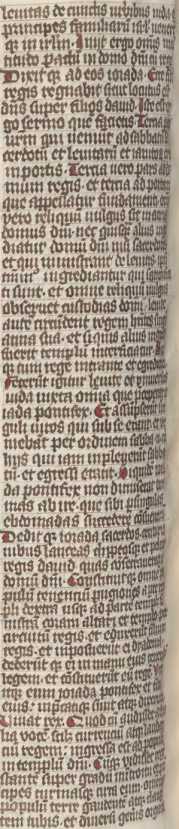 leuitas de cunctis urbibus iuda
principes familiaru isrl. uenerut
q; in irlm. Iniit ergo omis mul
titudo pactu in domo dni cu rege
Dixit q; ad eos ioiada. Ecce fili
regis regnabit sicut locutus est
dns super filios dauid. Iste est er
go sermo que facietis. Tercia pars
urm qui ueniut ad sabbatu
cerdotu et leuitaru et ianitoru
in portis. Tercia uero pars ad
mum regis. et tercia ad porta
que appellatur fundamenti.
uero reliquu uulgus sit in atrijs
domus dni. nec quisq; alius in
diatur domu dni nisi sacerdotes
et qui ministrant de leuitis. ipsi
tmo ingrediantur qui sanctifica
ti sunt. et omne reliquu uulgus
obseruet custodias dni. leuite
aute circudent regem habentes
arma sua. et si quis alius in
fuerit templu interficiatur.
q; cum rege intrante et egrediente
Fecerut igitur leuite et uniuersus
iuda iuxta omia que preceperat
iada pontifex. Et assupserut
guli uiros qui sub se erant. et
niebat per ordinem sabbati cu
hijs qui iam impleuerat sabba
tu. et egressi erant. Siquide
da pontifex non dimiserat
mas abire. que sibi p singulas
ebdomadas succedere
Dedit q; ioiada sacerdos centurio
nibus lanceas clipeosq; et peltas
regis dauid quas cosecrauerat
domu dni. Constituitq; omne
populu tenentiu pugiones a parte
pli dextra usq; ad parte templi
nistra coram altari et templo
circuitu regis. et eduxerut filiu
regis. et imposuerut ei dyadema
dederut q; ei in manu eius
legem. et constituerut eu rege.
itq; eum ioiada pontifex et filij
eius. inprecatiq; sunt atq; dixerut
Uiuat rex. Quod cu audisset
lia uoce scilicet currenciu atq;
ciu regem. ingressa est ad populu
in templu dni. Cuq; uidisset rege
stante super gradu in introitu
cipes turmasq; circa eum. omne
populu terre gaudente atq;
tem tubis. et diuersi generis